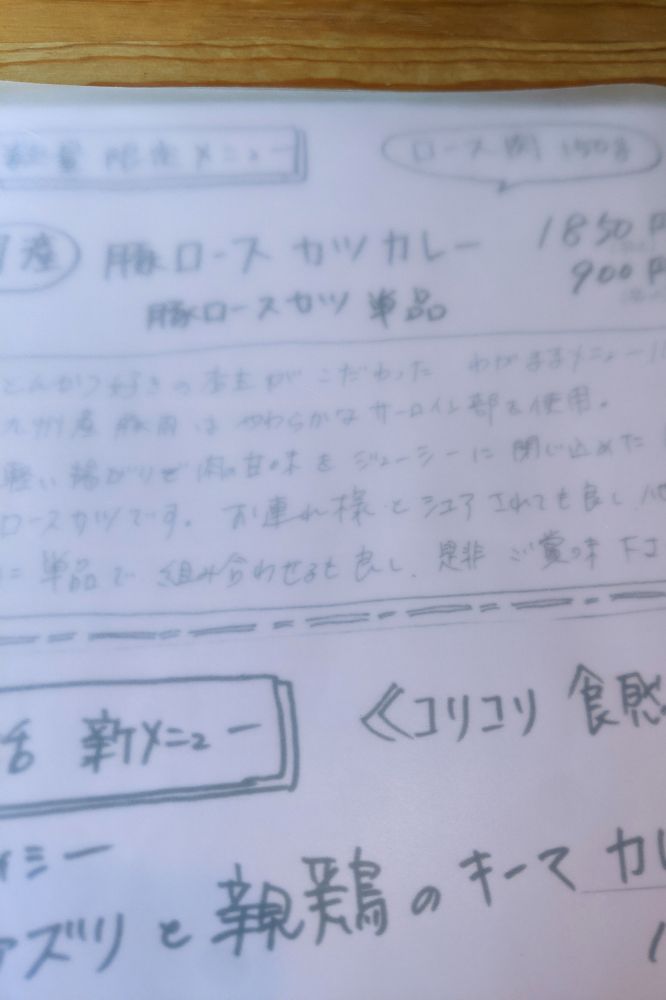 数量限定メニュー
ロース肉 150g
産
豚ロースカツカレー 1850円
豚ロースカツ 単品 900円
とんかつ好きの店主がこだわった わがままメニュー
九州産豚肉は やわらかな サーロイン部を使用。
軽い揚がりで 肉の甘味を ジューシーに閉じ込めた
ロースカツです。お連れ様とシェアされても良し、
に単品で組み合わせるも良し、是非ご賞味下さ
活 新メニュー
≪コリコリ 食感
シー
アズリと親鶏のキーマカレ